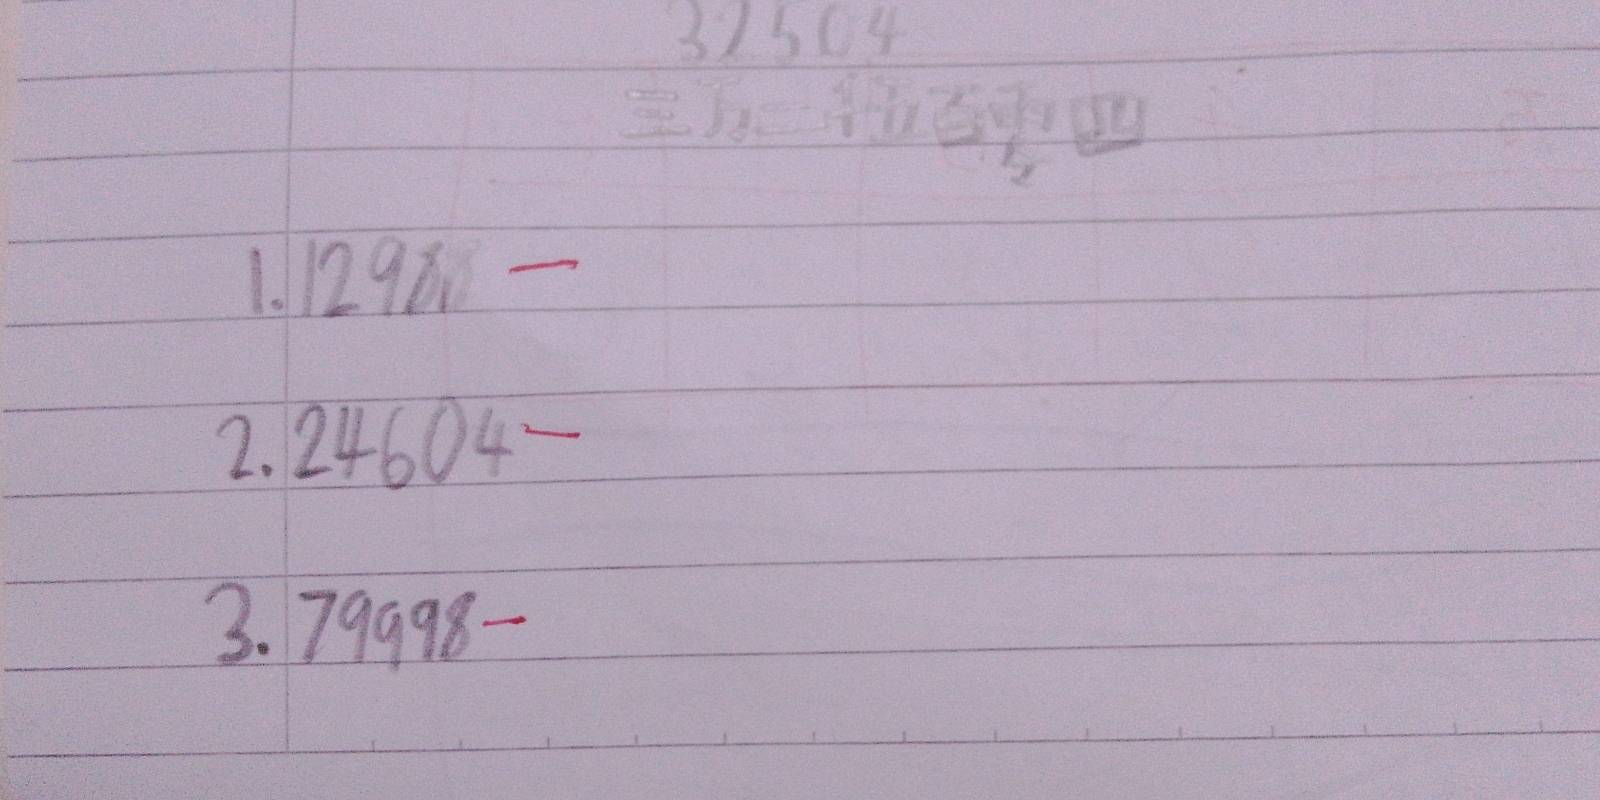 32504
三万二千五百零四
1. 12988 —
2. 24604 —
3. 79998 —